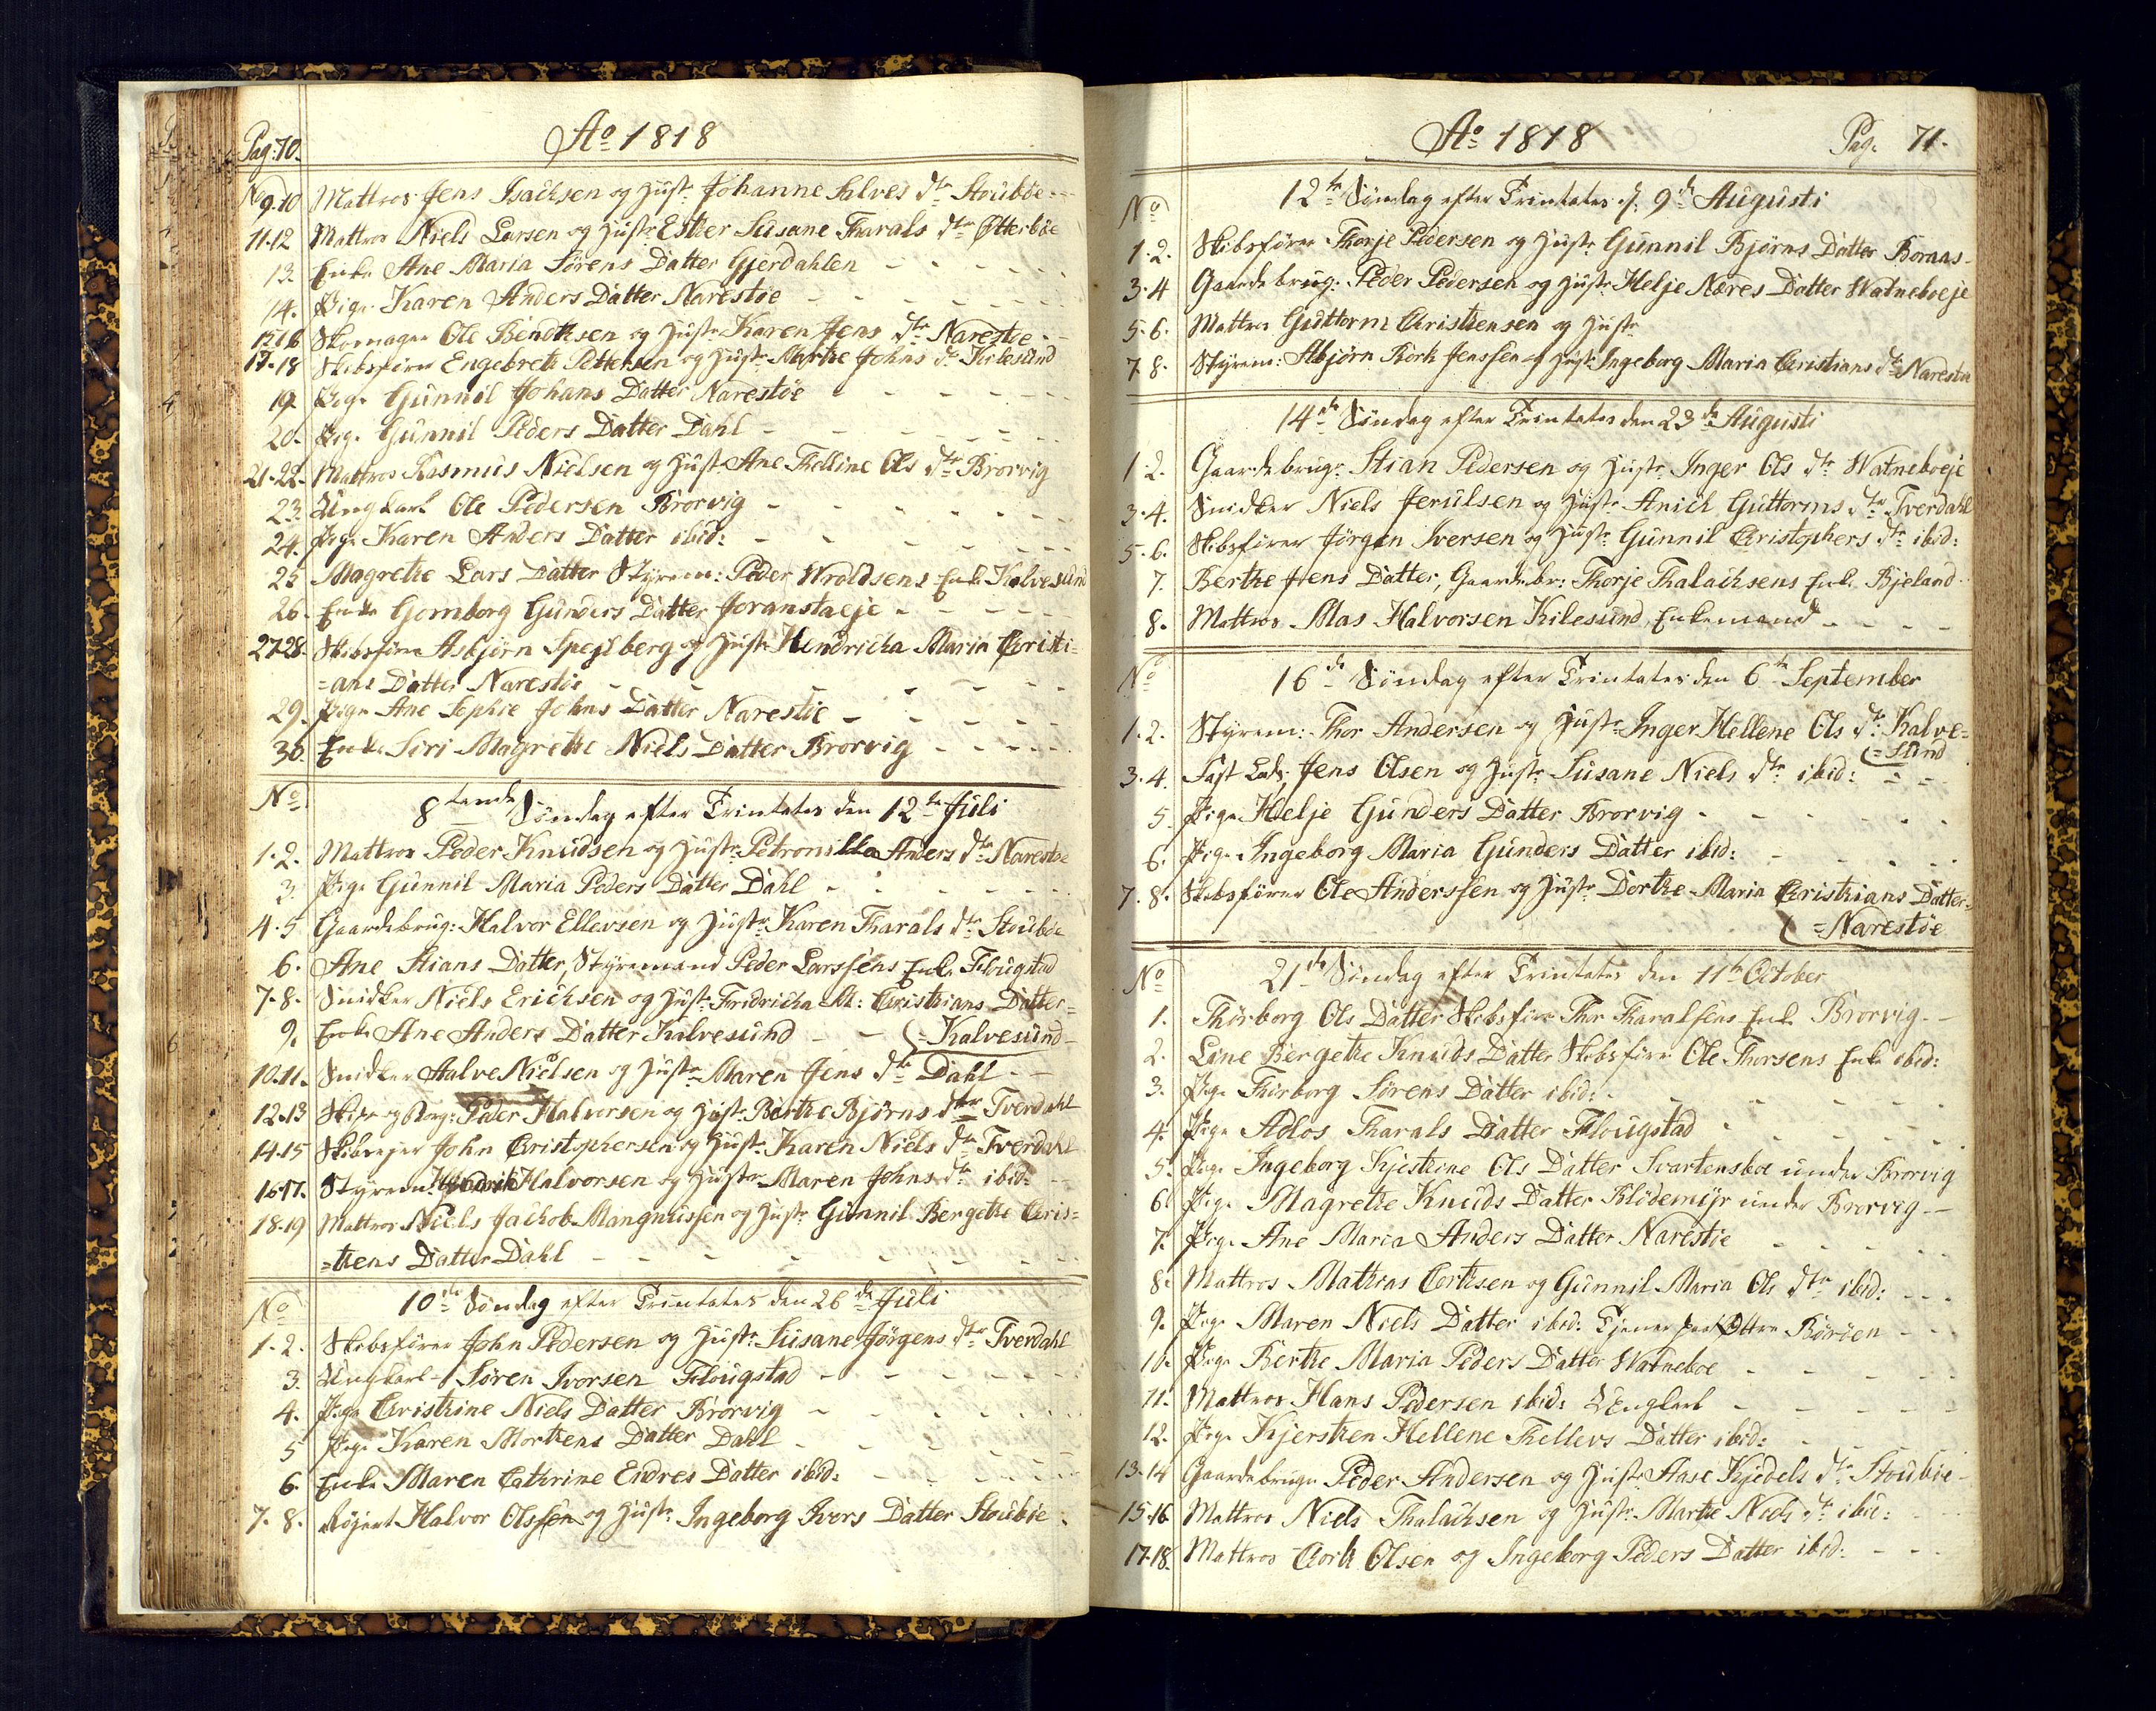 Pag: 70.
Ao 1818
No 9.10 Mattros Jens Isachsen og Hustr: Johanne Salves dtr Stoubøe
11.12 Mattros Niels Larsen og Hustr: Ester Susane Tharals dtr Øtterbøe
13. Enke Ane Maria Sørens Datter Gjerdahlen
14. Pige Karen Anders Datter Narestøe
15.16 Skomager Ole Bendtsen og Hustr: Karen Jens dtr Narestøe
17-18 Skibsfører Engebreth Pettersen og Hustr: Marthe Johns dtr Kilesund
19 Pige Gunnil Johans Datter Narestøe
20. Pige Gunnil Peders Datter Dahl
21-22. Mattros Rasmus Nielsen og Hustr: Ane Thelline Ols dtr Brorvig
23. Ungkarl Ole Pedersen Brorvig
24. Pige Karen Anders Datter ibid:
25 Magrethe Lars Datter Styrem: Peder Wroldsens Enke Kalvesund
26. Enke Gomborg Gunders Datter Joranstaeje
27-28. Skibsfører Asbjørn Spejlberg og Hustr: Hendricka Maria Christi=
=ans Datter Narestøe
29. Pige Ane Sophie Johns Datter Narestøe
30. Enke Siri Magrethe Niels Datter Brorvig
No
8tende Søndag efter Trintates den 12te Juli
1.2. Mattros Peder Knudsen og Hustr: Petronilla Anders dtr Narestøe
3. Pige Gunnil Maria Peders Datter Dahl
4.5 Gaardebrug: Halvor Ellevsen og Hustr: Karen Tharals dtr Stoubøe
6. Ane Stians Datter, Styremand Peder Larssens Enke Flougstad
7.8. Snidker Niels Erichsen og Hustr: Fridricha M: Christhians Datter=
9. Enke Ane Anders Datter Kalvesund (=Kalvesund
10.11. Snidker Halve Nielsen og Hustr: Maren Jens dtr Dahl
12.13 Peder Halvorsen og Hustr: Berthe Bjørns dtr Tverdahl
14.15 Skibsejer John Christophersen og Hustr: Karen Niels dtr Tverdahl
16.17. Styrem: Hendrik Halvorsen og Hustr: Maren Johns dtr ibid:
18.19 Mattros Niels Jachob Mangnussen og Hustr: Gunnil Bergethe Chris=
=thens Datter Dahl
No
10de Søndag efter Trintates den 26de Juli
1.2. Skibsfører John Pedersen og Hustr: Susane Jørgens dtr Tverdahl
3. Ungkarl Søren Ivorsen Flougstad
4. Pige Christhine Niels Datter Brorvig
5 Pige Karen Morthens Datter Dahl
6. Enke Maren Cathrine Endres Datter ibid:
7.8. Halvor Olssen og Hustr: Ingeborg Ivors Datter Stoubøe
Ao 1818
Pag. 71.
No
12te Søndag efter Trintates d. 9de Augusti
1.2. Skibsfører Thorje Pedersen og Hustr: Gunnil Bjørns Datter Boraas
3.4 Gaardebrug: Peder Pedersen og Hustr: Helje Næres Datter Watneboeje
5.6. Mattros Guttorm Christhensen og Hustr:
7.8. Styrem: Abjørn ThorkJenssen og Hustr: Ingeborg Maria Christians dtr Narestøe
14de Søndag efter Trintates den 23de Augusti
1.2. Gaardebrug: Stian Pedersen og Hustr: Inger Ols dtr Watneboeje
3.4. Snidker Niels Jerulsen og Hustr: Anich Guttorms dtr Tverdahl
5.6. Skibsfører Jørgen Iversen og Hustr: Gunnil Christophers dtr ibid:
7. Berthe Jens Datter, Gaardebr: Thorje Thalachsens Enke Bjeland
8. Mattros Mas Halvorsen Kilesund, Enkemand
No
16de Søndag efter Trintates den 6te September
1.2. Styrem: Thor Andersen og Hustr: Inger Hellene Ols dtr Kalve=
(=sund
3.4. Fast Lods: Jens Olsen og Hustr: Susane Niels dtr ibid:
5. Pige Helje Gunders Datter Brorvig
6. Pige Ingeborg Maria Gunders Datter ibid:
7.8. Skibsfører Ole Anderssen og Hustr: Dorthe Maria Christhians Datter=
(=Narestøe
No
21de Søndag efter Trintates den 11te October
1. Thorborg Ols Datter Skibsfører Thor Tharalsens Enke Brorvig
2. Line Bergethe Knuds Datter Skibsfører Ole Thorsens Enke ibid:
3. Pige Thorborg Sørens Datter ibid:
4. Pige Adlos Tharals Datter Flougstad
5. Pige Ingeborg Kjisthine Ols Datter Svartensboe under Brorvig
6. Pige Magrethe Knuds Datter Blødemijr under Brorvig
7. Pige Ane Maria Anders Datter Narestøe
8. Mattros Mathias Corthsen og Gunnil Maria Ols dtr ibid:
9. Pige Maren Niels Datter ibid: Tjener paa Ottre Børøen
10. Pige Berthe Maria Peders Datter Watneboe
11. Mattros Hans Pedersen ibid: Ungkarl
12. Pige Kjersthen Hellene Thellevs Datter ibid:
13.14 Gaardebruger Peder Andersen og Hustr: Aase Kjedels dtr Stoubøe
15.16 Mattros Niels Thalachsen og Hustr: Marthe Niels dtr ibid:
17.18. Mattros Corth Olsen og Ingeborg Peders Datter ibid: